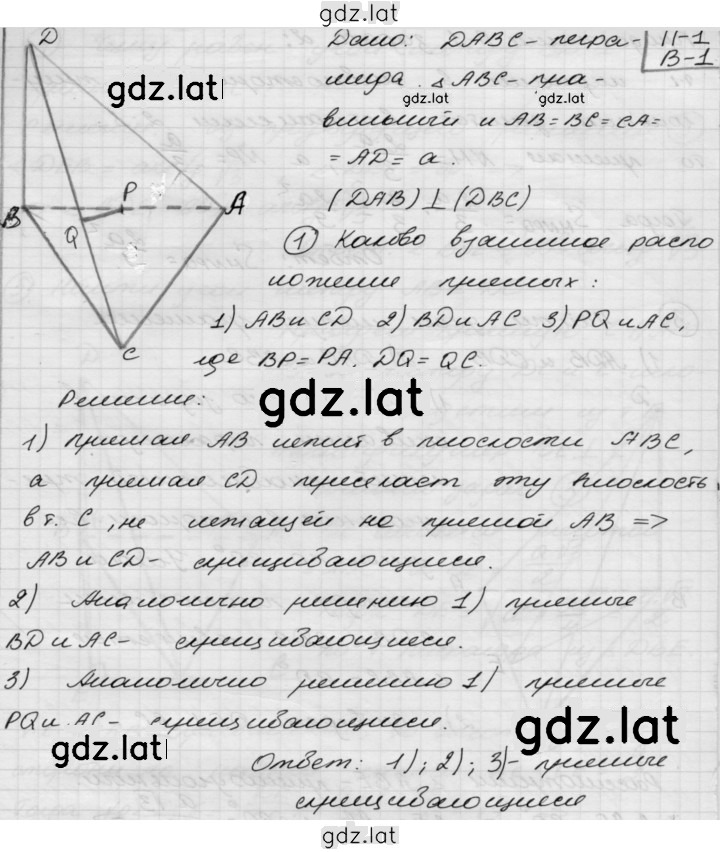 gdz.lat
D
Дано: DABC – пира-
II-1
B-1
gdz.lat
мида. △ABC – пра-
gdz.lat
gdz.lat
вильный и AB=BC=CA=
= AD = a.
B
P
A
(DAB) ⊥ (DBC)
Q
① Каково взаимное распо
ложение прямых:
1) AB и CD 2) BD и AC 3) PQ и AC,
C
где BP = PA. DQ = QC.
gdz.lat
Решение:
1) прямая AB лежит в плоскости ABC,
а прямая CD пересекает эту плоскость
в т. C, не лежащей на прямой AB =>
AB и CD – скрещивающиеся.
2) Аналогично решению 1) прямые
BD и AC – скрещивающиеся.
3) Аналогично решению 1) прямые
PQ и AC – скрещивающиеся.
gdz.lat
gdz.lat
Ответ: 1); 2); 3) – прямые
скрещивающиеся
gdz.lat